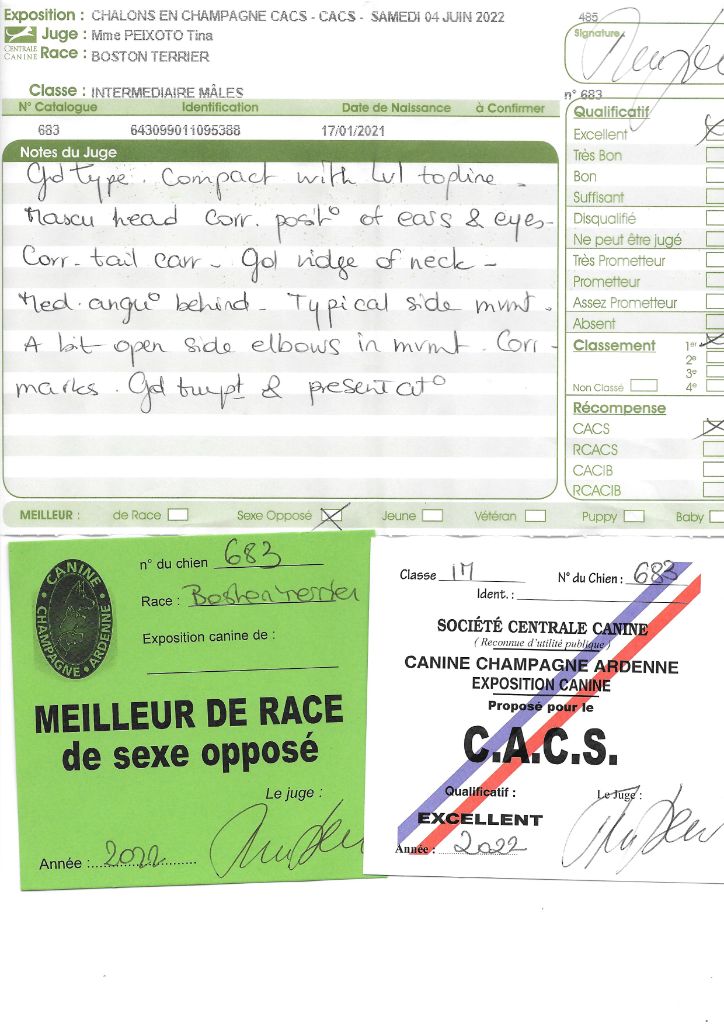 Exposition : CHALONS EN CHAMPAGNE CACS - CACS - SAMEDI 04 JUIN 2022
485
Juge : Mme PEIXOTO Tina
Signature
CENTRALE CANINE
Race : BOSTON TERRIER
Classe : INTERMEDIAIRE MÂLES
n° 683
N° Catalogue Identification Date de Naissance à Confirmer
683 643099011095388 17/01/2021
Notes du Juge
Gd type. Compact with lvl topline.
Mascu head Corr. posit° of ears & eyes-
Corr- tail carr- Gd ridge of neck-
Med. angu° behind- Typical side mvmt.
A bit open side elbows in mvmt. Corr-
marks. Gd tmpt & presentat°
Qualificatif
Excellent
Très Bon
Bon
Suffisant
Disqualifié
Ne peut être jugé
Très Prometteur
Prometteur
Assez Prometteur
Absent
Classement 1er
2e
3e
Non Classé 4e
Récompense
CACS
RCACS
CACIB
RCACIB
MEILLEUR : de Race Sexe Opposé Jeune Vétéran Puppy Baby
CANINE CHAMPAGNE ARDENNE
n° du chien 683
Race : Boston Terrier
Exposition canine de :
MEILLEUR DE RACE
de sexe opposé
Le juge :
Année : 2022
Classe IM N° du Chien : 683
Ident. :
SOCIÉTÉ CENTRALE CANINE
( Reconnue d'utilité publique )
CANINE CHAMPAGNE ARDENNE
EXPOSITION CANINE
Proposé pour le
C.A.C.S.
Qualificatif : Le Juge :
EXCELLENT
Année : 2022